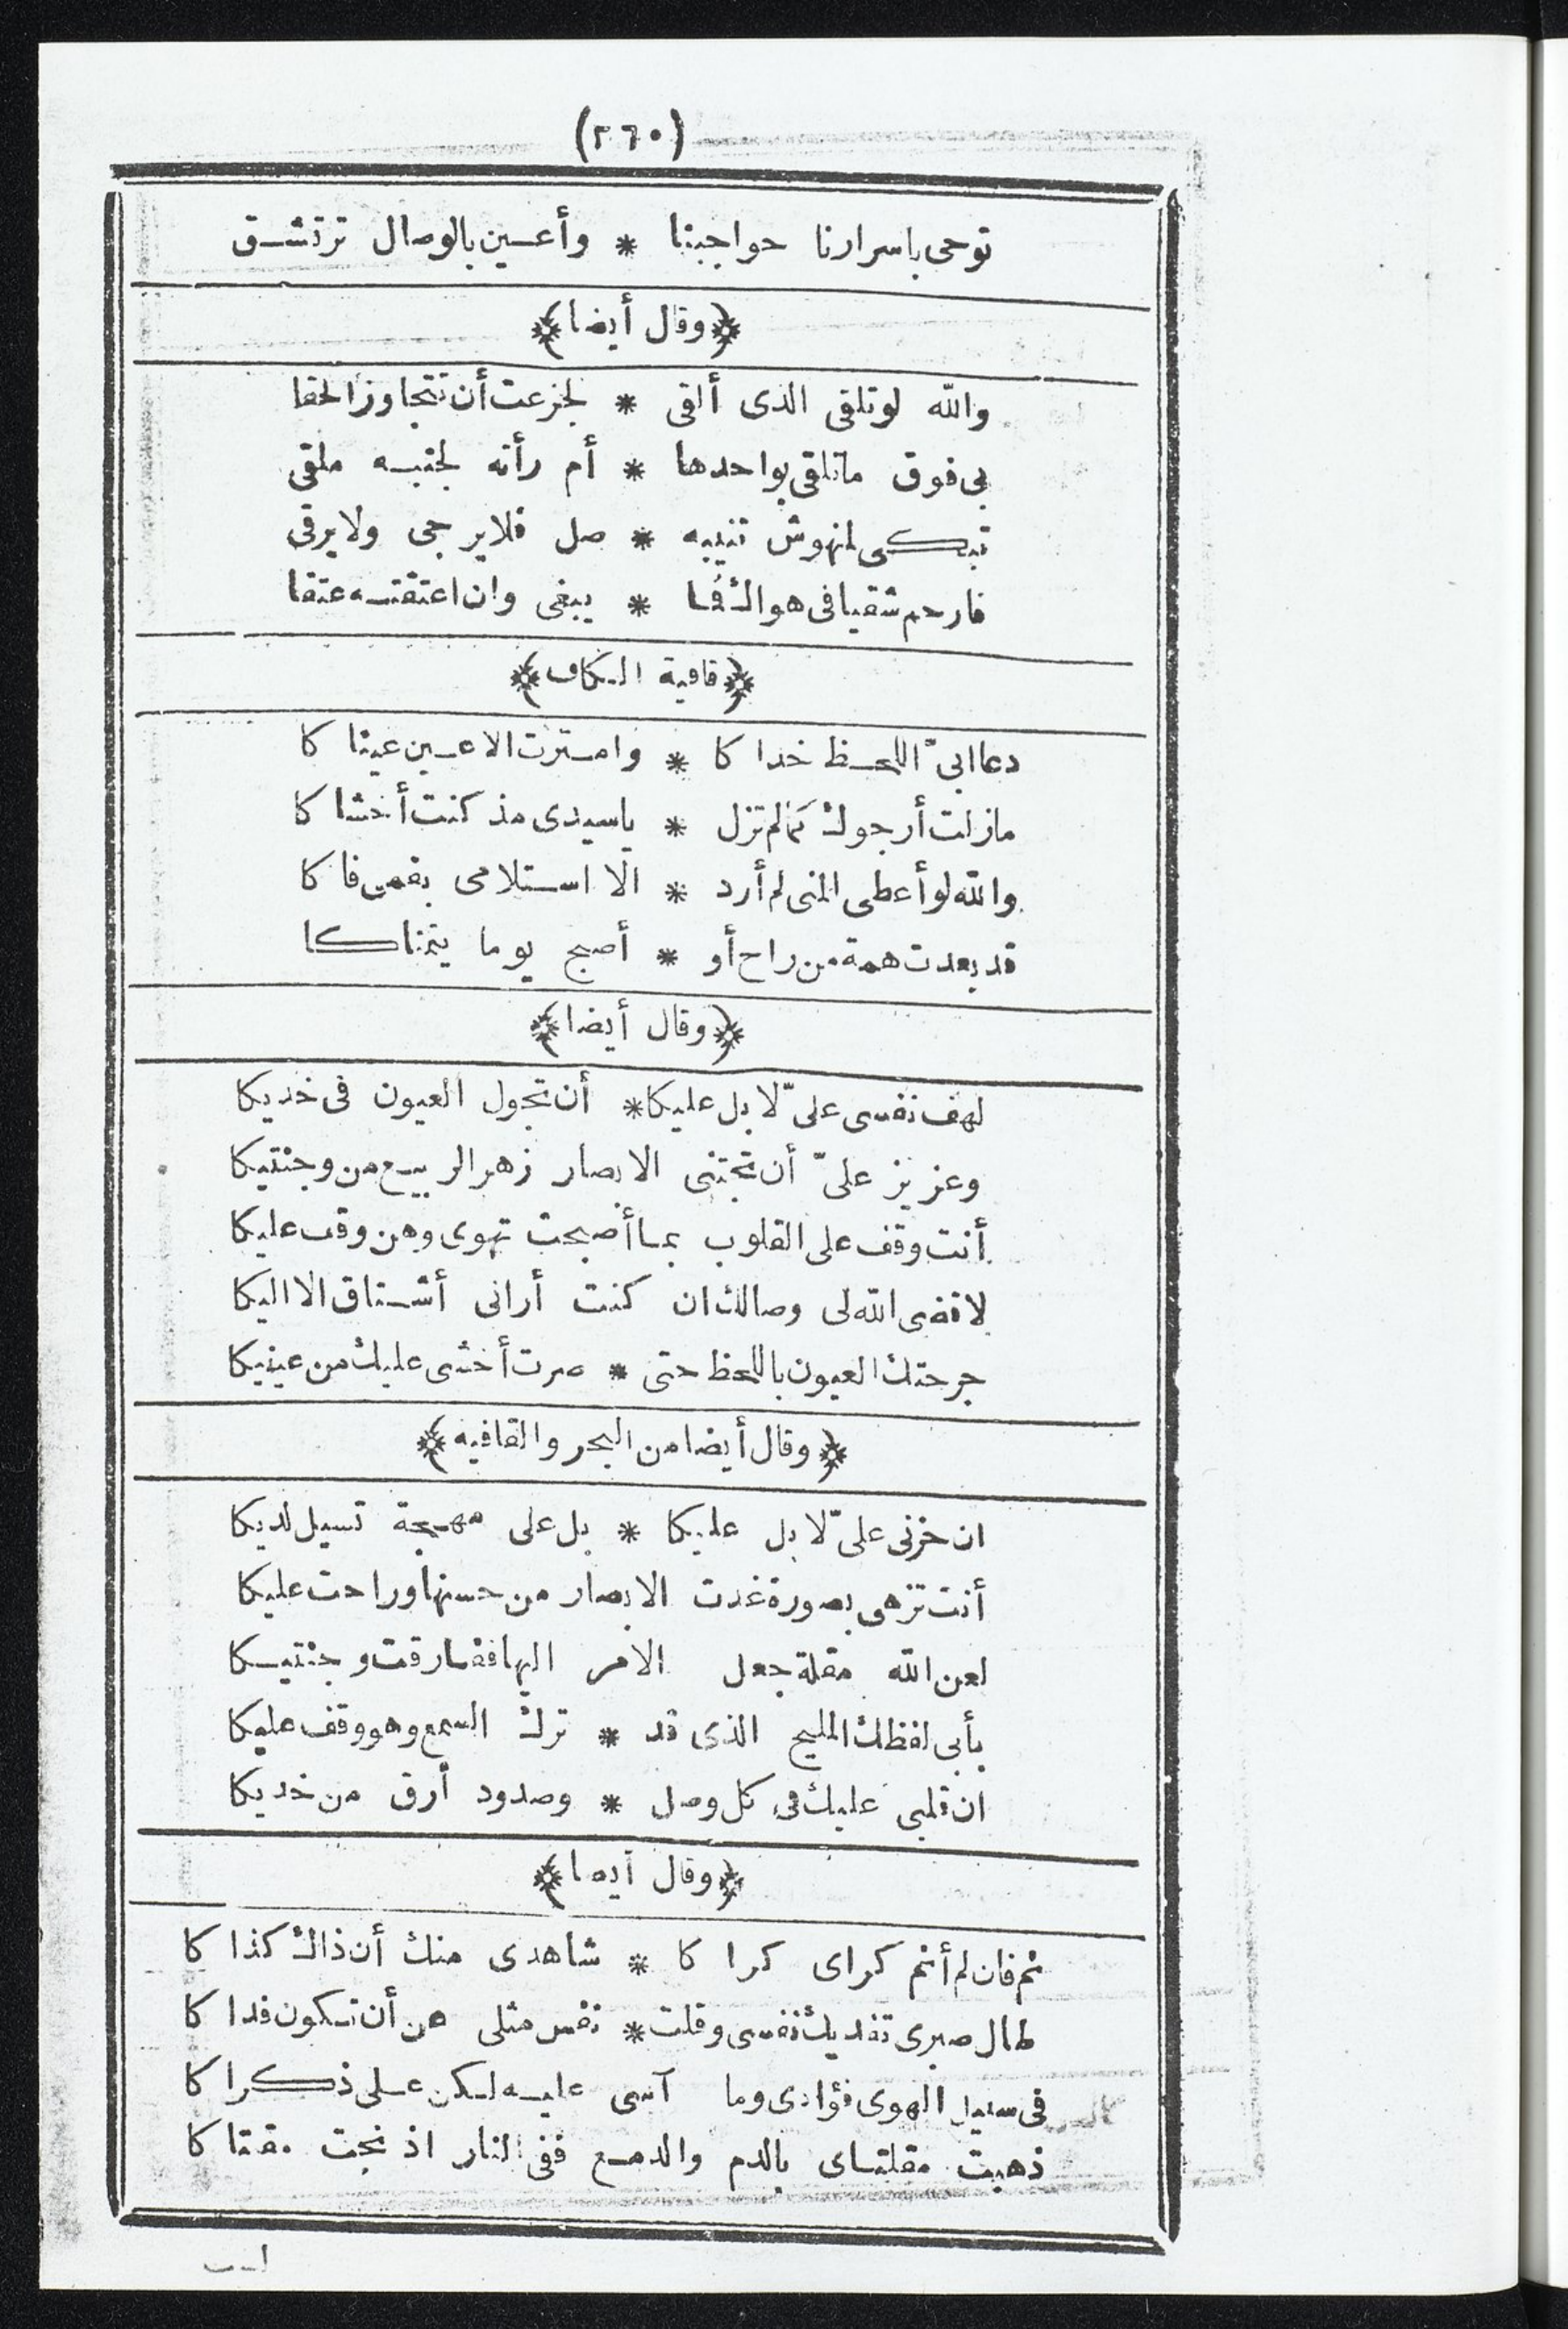 (٢٦٠)
توحى باسرارنا حواجبنا * وأعـين بالوصال ترتشـق
﴿وقال أيضا﴾
والله لو تلقى الذى ألقى * لجزعت أن تتجاوز الحقا
بى فوق ما تلقى بواحدها * أم رأته لجنبـه ملقى
تبكـى لمنهوش تنيبه * صل فلا يرجى ولا يرقى
فارحم شقيا فى هواك فـا * يبغى وان اعتقتـه عتقا
﴿قافية الـكاف﴾
دعا ابىّ اللحـظ خداكا * وامـترت الاعـين عيناكا
مازلت أرجوك كما لم تزل * ياسيدى مذ كنت أخشاكا
والله لو أعطى المنى لم أرد * الا استـلامى بفمى فاكا
قد بعدت همة من راح أو * أصبح يوما يتمناكـا
﴿وقال أيضا﴾
لهف نفسى علىّ لا بل عليكا * أن تجول العيون فى خديكا
وعزيز علىّ أن تجتنى الابصار زهر الربيـع من وجنتيكا
أنت وقف على القلوب بمـا أصبحت تهوى وهن وقف عليكا
لا قضى الله لى وصالك ان كنت أرانى أشـتاق الا اليكا
جرحتك العيون باللحظ حتى * صرت أخشى عليك من عينيكا
﴿وقال أيضا من البحر والقافيه﴾
ان حزنى علىّ لا بل عليكا * بل على مهـجة تسيل لديكا
أنت تزهى بصورة غدت الابصار من حسنها وراحت عليكا
لعن الله مقلة جعل الامر اليها فقـارقت وجنتيـكا
بأبى لفظك المليح الذى قد * ترك السمع وهو وقف عليكا
ان قلبى عليك فى كل وصل * وصدود أرق من خديكا
﴿وقال أيضا﴾
نم فان لم أنم كراى كراكا * شاهدى منك أن ذاك كذاكا
طال صبرى تفديك نفسى وقلت * نفس مثلى من أن تـكون فداكا
فى سبيل الهوى فؤادى وما آسى عليـه لـكن عـلى ذكـراكا
ذهبت مقلتـاى بالدم والدمـع ففى النار اذ نجت مقلتاكا